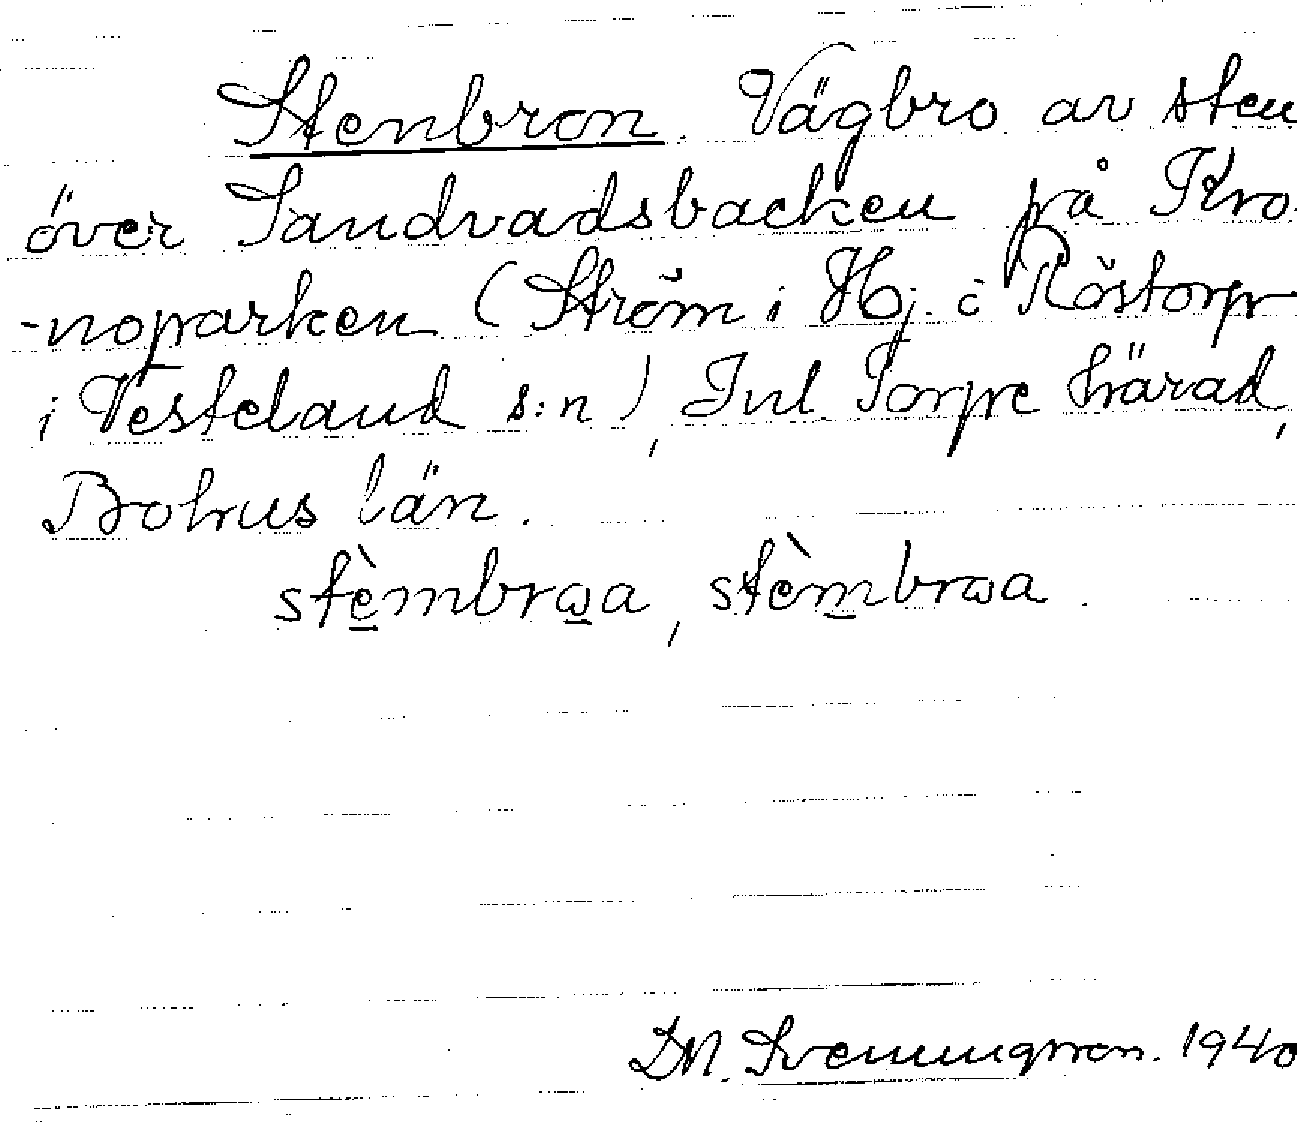 Stenbron. Vägbro av sten
över Sandvadsbacken på Kro-
-noparken (Ström i Hj. o Röstorp
i Vesteland s:n), Inl. Torpe härad,
Bohus län.
stèmbrωa, stèmbrωa.
DM. Svenningsson. 1940